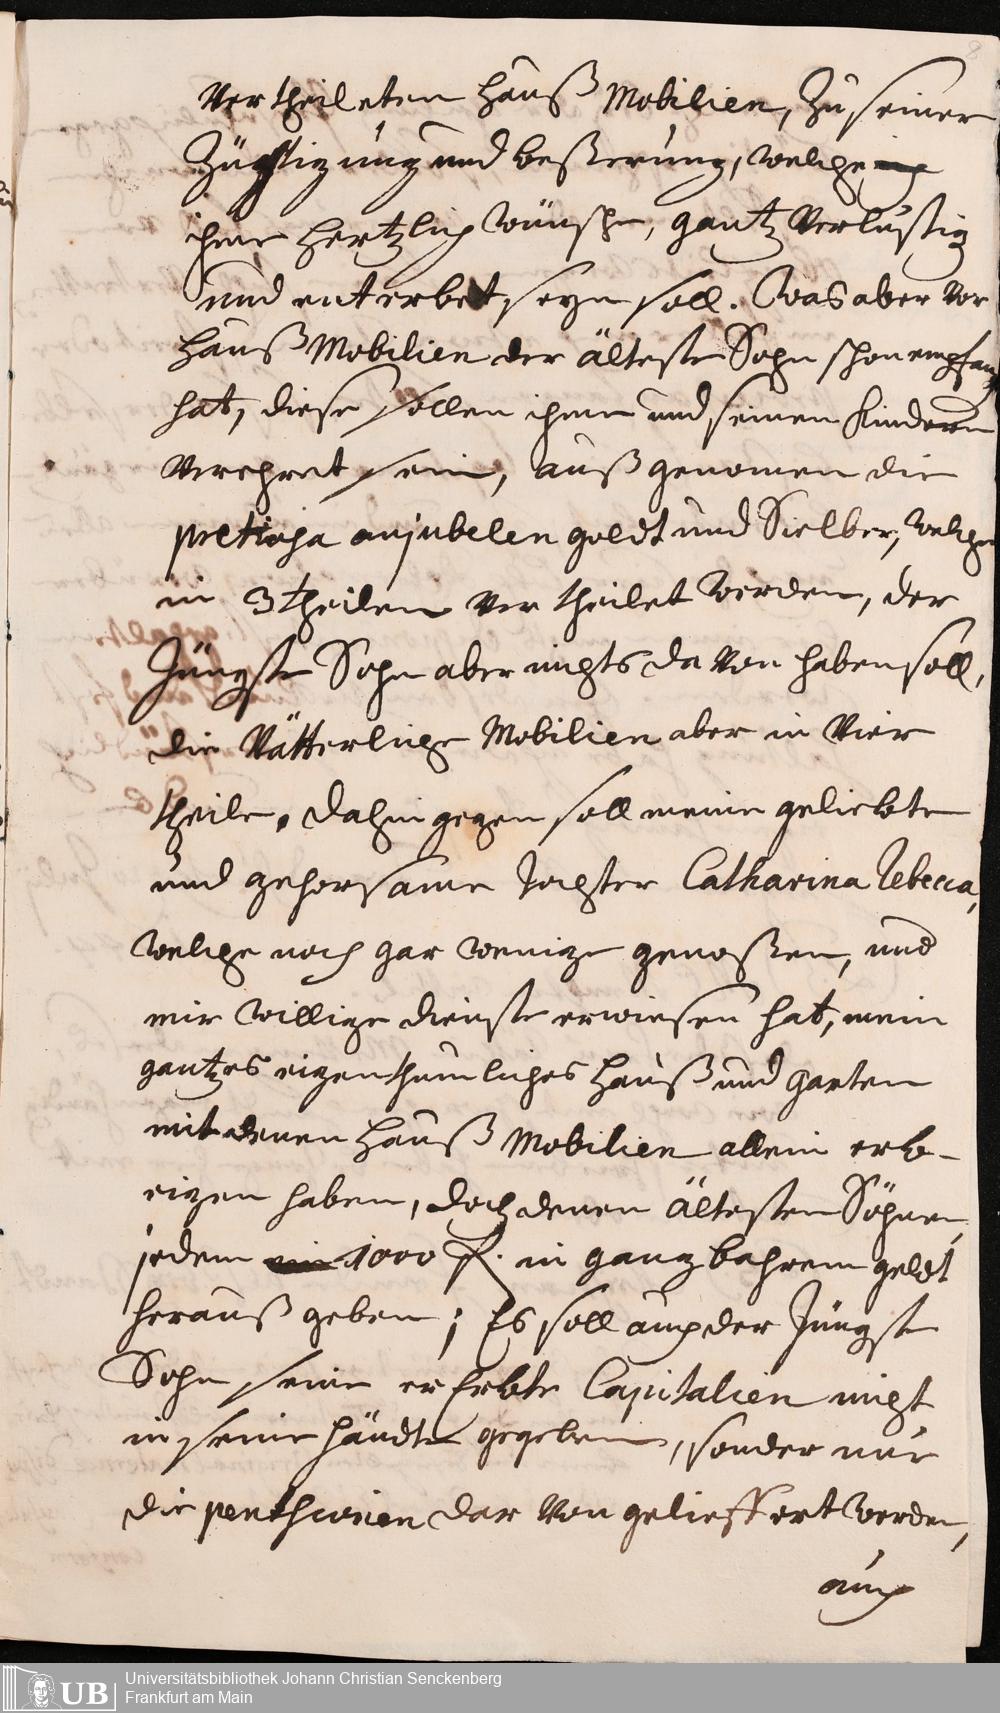 Vertheileten Hauß Mobilien, Zu seiner
Züchtigung und beßerung, welche
ihme Hertzlich wünsche, gantz Verlustig
und enterbet seyn soll. Was aber Vor
Hauß Mobilien der älteste Sohn schon empfang
hat, diese sollen ihme und seinen Kindern
Verehret sein, außgenomen die
pretiosa an jubelen goldt und Sielber, welche
in 3 theilen Vertheilet werden, der
Jüngste Sohn aber nichts da Von haben soll,
die Vätterliche Mobilien aber in Vier
theile. Dahingegen soll meine geliebte
und gehorsame Tochter Catharina Rebecca,
welche noch gar wenige genoßen, und
mir willige dienste erwiesen hat, mein
gantzes eigenthumliches Hauß und garten
mit denen Hauß Mobilien allein erb-
eigen haben, doch denen ältesten Söhnen
jedem 1000 f. in gantz bahrem geldt
herauß geben; Es soll auch der Jüngste
Sohn seine ererbte Capitalien nicht
in seine händte gegeben, sonder nur
die penthsionen dar Von gelieffert werden,
auch
Universitätsbibliothek Johann Christian Senckenberg
Frankfurt am Main
UB